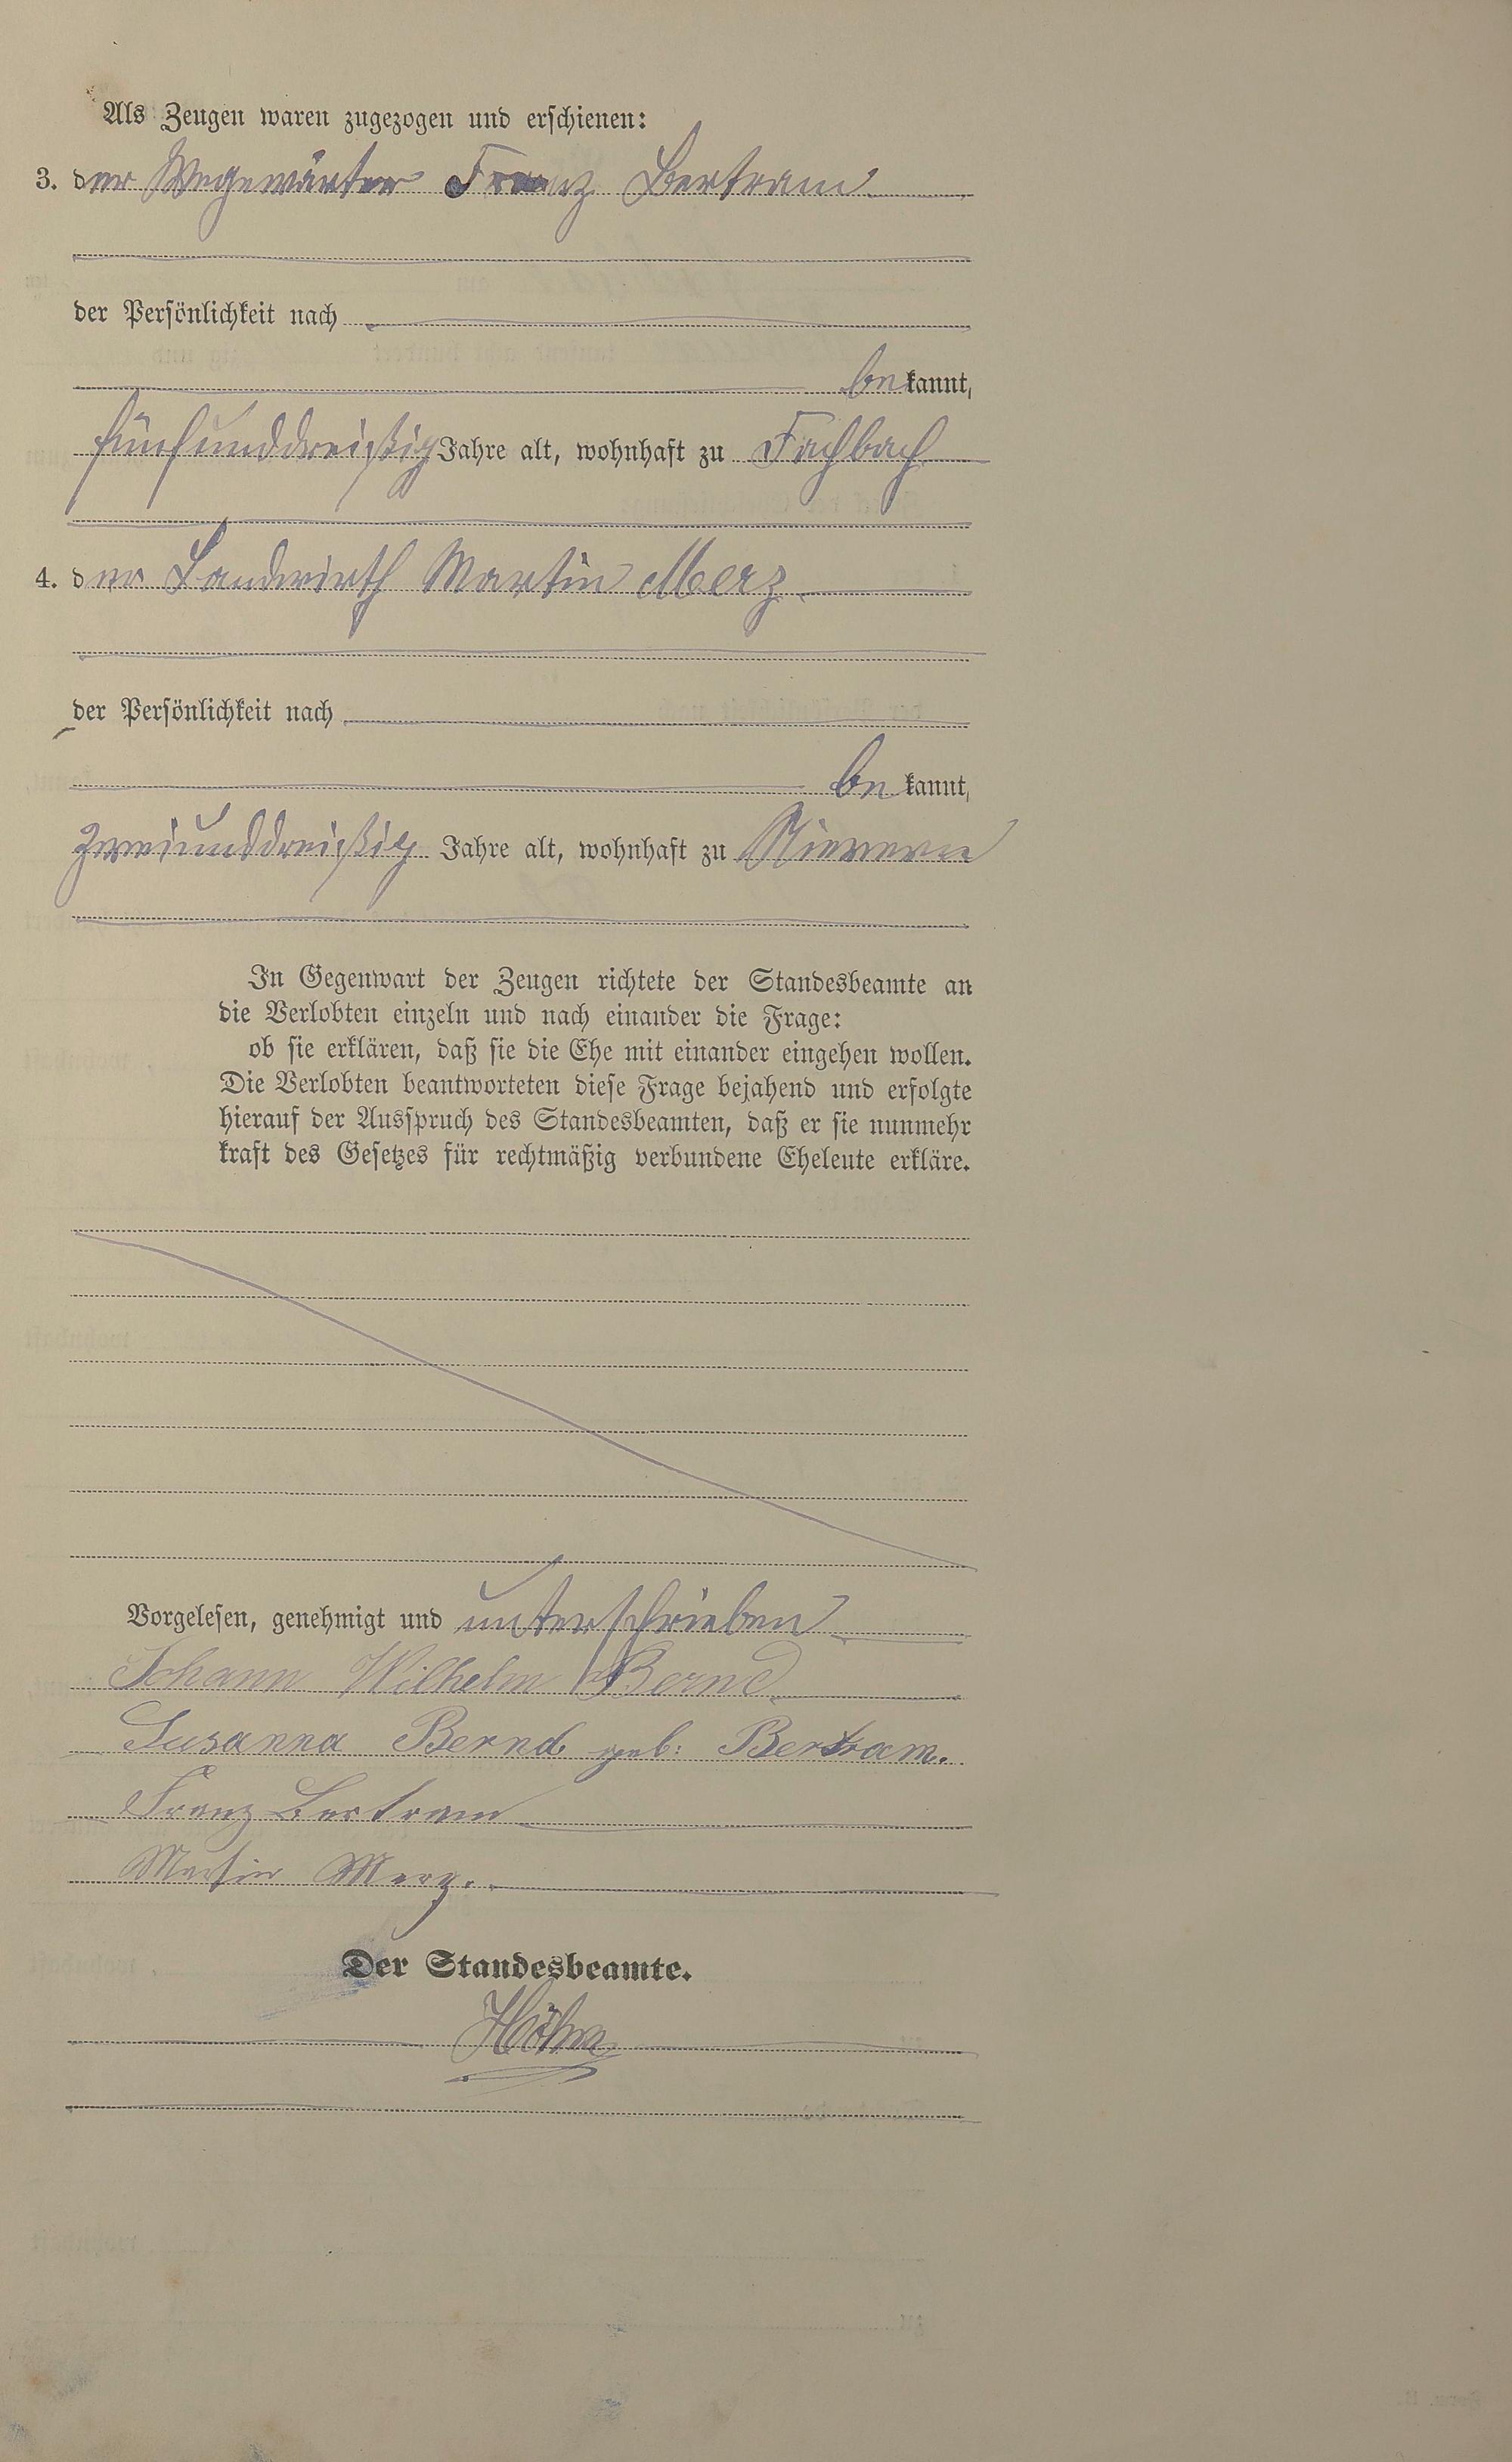 Als Zeugen waren zugezogen und erschienen:
3. der Wegewärter Franz Bertram
der Persönlichkeit nach
bekannt,
fünfunddreißig Jahre alt, wohnhaft zu Fachbach
4. der Landwirth Martin Merz
der Persönlichkeit nach
bekannt,
zweiunddreißig Jahre alt, wohnhaft zu Nievern
In Gegenwart der Zeugen richtete der Standesbeamte an
die Verlobten einzeln und nach einander die Frage:
ob sie erklären, daß sie die Ehe mit einander eingehen wollen.
Die Verlobten beantworteten diese Frage bejahend und erfolgte
hierauf der Ausspruch des Standesbeamten, daß er sie nunmehr
kraft des Gesetzes für rechtmäßig verbundene Eheleute erkläre.
Vorgelesen, genehmigt und unterschrieben
Johann Wilhelm Bernd
Susanna Bernd geb: Bertram.
Franz Bertram
Martin Merz.
Der Standesbeamte.